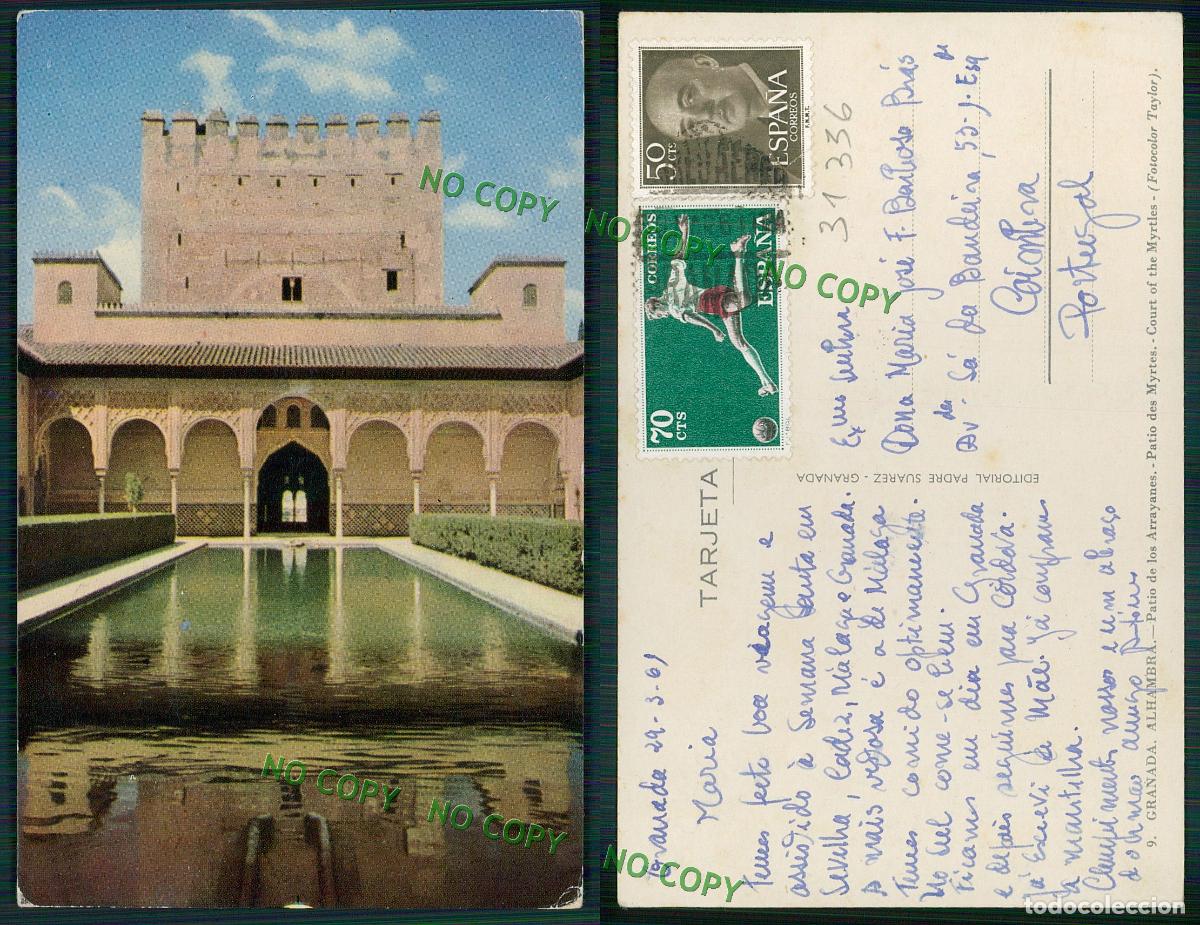 NO COPY
NO COPY
NO COPY
NO COPY
NO COPY
NO COPY
NO COPY
50
CTS
ESPAÑA
CORREOS
F.N.M.T.
70
CTS
CORREOS
ESPAÑA
31 336
TARJETA
EDITORIAL PADRE SUAREZ - GRANADA
Dona Maria José F. Barbosa Brás
Avda Sá da Bandeira, 53-1º Esq
Coimbra
Portugal
Granada 29-3-61
Maria
Temos feito boa viagem e
assistido à Semana Santa em
Sevilha, Cadiz, Málaga e Granada.
A mais vistosa é a de Málaga
Temos comido optimamente.
No Sul come-se bem.
Ficamos um dia em Granada
e depois seguimos para Córdova.
Já escrevi à Mãe. Já compramos
a mantilha.
Cumprimentos nossos e um abraço
do irmão amigo
9. GRANADA. ALHAMBRA.—Patio de los Arrayanes.-Patio des Myrtes.-Court of the Myrtles-(Fotocolor Taylor).
todocoleccion